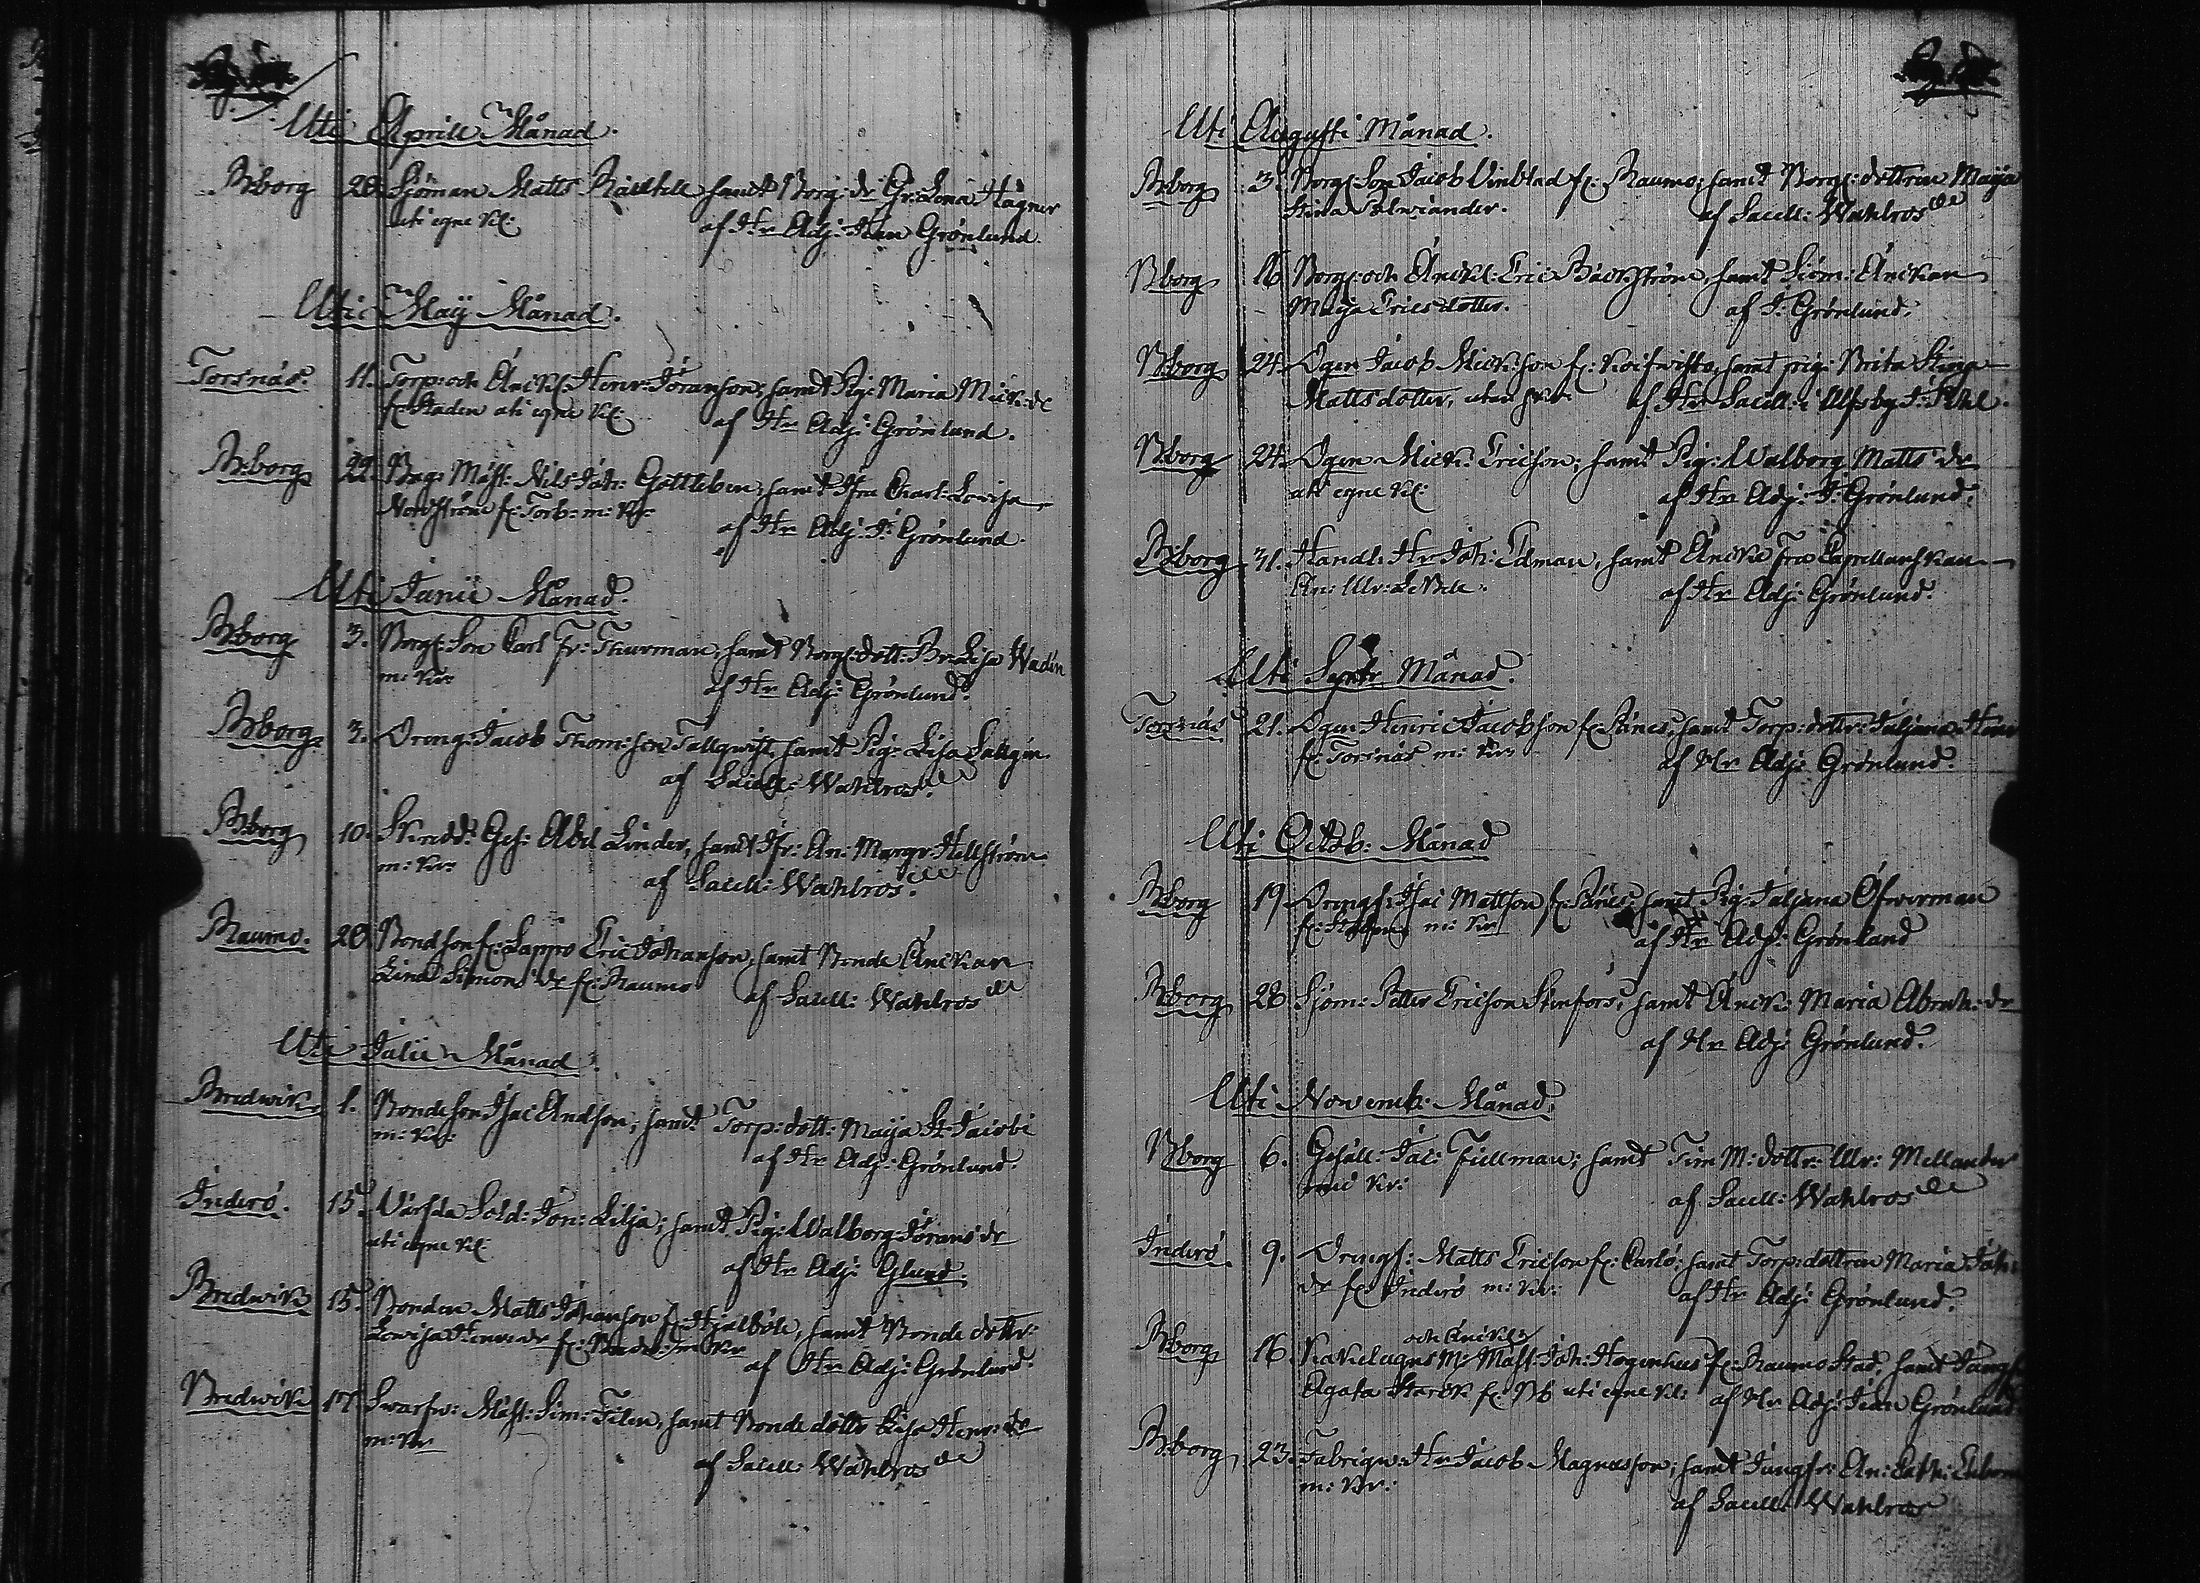 Uti Aprill Månad.
B:borg 28. Sjöman Matts samt Borg: dr Gr: Lena Hagner
uti egne kl: af Hr Adj: Jean Grönlund.
Uti Maij Månad.
Torsnäs. 11. Torp: och Änckl: Henr: Jöransson; samt Pig: Maria Mick: dr
fr: Staden uti egne kl: af Hr Adj: Grönlund.
B:borg 22. Bag: Mäst: Nils Joh: Gottleben; samt Jfru Charl: Lovisa
Nordström fr: Torb: m: kr: af Hr Adj: J: Grönlund.
Uti Junii Månad.
B:borg 3. Borg: Son Carl Fr: Thurman, samt Borg: dott: Br: Lisa Wadén
m: kr: af Hr Adj: Grönlund.
B:borg 3. Dreng: Jacob Thom:son Tallqwist, samt Pig: Lisa
af Sacell: Wahlroos.
B:borg 10. Skredd: Ges: Abel Linder, samt Jfr: An: Margr Hellström
m: kr: af Sacell: Wahlros.
Raumo. 20 Bondson fr: Lappo Eric Johansson, samt Bonde Änckan
Lena Simons dr fr: Raumo af Sacell: Wahlros
Uti Julii Månad.
Bredwik. 1. Bondeson Isac Andsson, samt Torp: dott: Maija St: Jacobi
m: kr: af Hr Adj: Grönlund.
Inderö. 15. Värfda Sold: Jon: Lilja; samt Pig: Walborg Jörans dr
uti egne kl: af Hr Adj: Glund.
Bredwik 15. Bonden Matts Johansson fr: Hjulböle, samt Bonde dottr:
Lovisa Henr dr fr: m: kr af Hr Adj: Grönlund.
Bredwik 17 Swarfw: Mäst: Sim: Filen, samt Bonde dottr Lisa Henr: dr
m: kr af Sacell: Wahlros
Uti Augusti Månad.
B:borg 3. Borg: Son Jacob Vinblad fr: Raumo; samt Borg: dottren Maija
Stina af Sacell: Wahlros
B:borg 16 Borg: och Änckl: Eric Bäckström, samt Siöm: Änckan
Maija Ericsdotter. af J: Grönlund.
B:borg 24. Dgen Jacob Mickson fr: samt pig: Brita Stina
Mattsdotter, utan kr: af Hr Sacell: i Ulfsby J:
B:borg 24. Dgen Mick: Ericson; samt Pig: Walborg Matts dr
uti egne kl: af Hr Adj: J: Grönlund.
B:borg 31. Handl: Hr Joh: Edman, samt Änke Fru Capellanskan
An: Ulr: af Hr Adj: Grönlund.
Uti Septr Månad.
Torsnäs 21. Dgen Henric Jacobsson fr: samt Torp: dottr: Juliana Henr
fr: Torsnäs m: kr: af Hr Adj: Grönlund.
Uti Octob: Månad
B:borg 19 Drengs: Isac Mattson fr: samt Pig: Juliana Öfverman
m: kr af Hr Adj: Grönlund
B:borg 28 Sjöm: Petter Ericson Stenfors, samt Änck: Maria Abrah: dr
af Hr Adj: Grönlund.
Uti Novemb: Månad.
B:borg 6. Gesäll: Jac: Fillman; samt Tim M: dottr: Ulr: Mellander
med kr: af Sacell: Wahlros
Inderö 9. Drengs: Matts Ericson fr: Carlö; samt Torp: dottren Maria Joh:
dr fr: Inderö m: kr: af Hr Adj: Grönlund.
och Änckl:
B:borg 16 Kakelugns M: Mäst: Joh: fr: Raumo Stad, samt Jungfr
Agata Starck fr: Bb uti egne kl: af Hr Adj: Jean Grönlund.
B:borg 23. Fabriqw: Hr Jacob Magnusson; samt Jungfr: An: Cath: Ekbom
m: kr: af Sacell: Wahlros